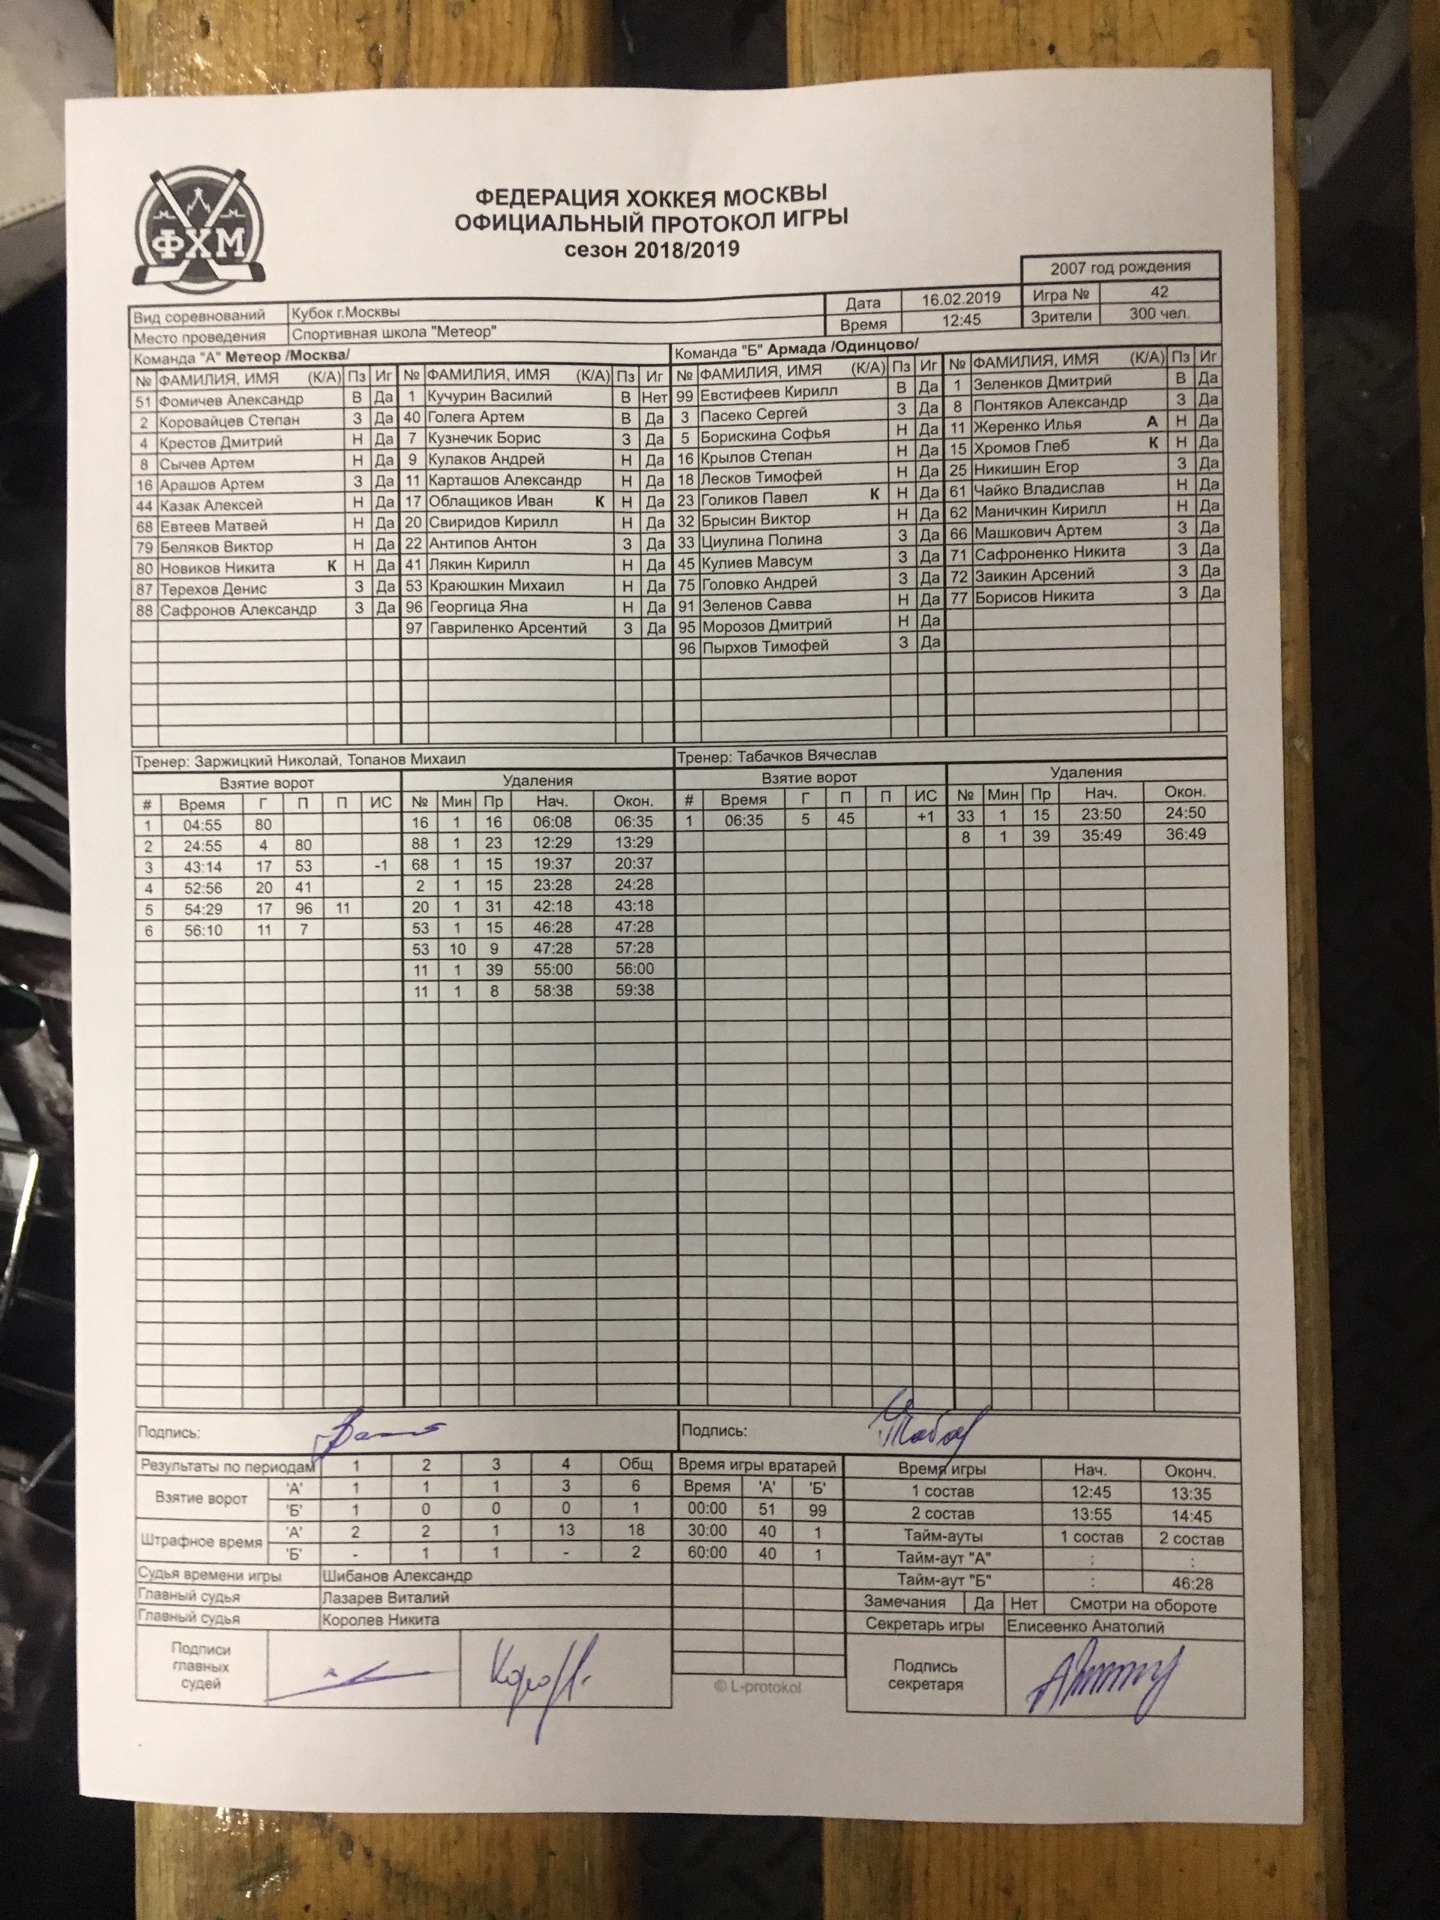 ФХМ
ФЕДЕРАЦИЯ ХОККЕЯ МОСКВЫ
ОФИЦИАЛЬНЫЙ ПРОТОКОЛ ИГРЫ
сезон 2018/2019
2007 год рождения
Вид соревнований Кубок г.Москвы Дата 16.02.2019 Игра № 42
Место проведения Спортивная школа "Метеор" Время 12:45 Зрители 300 чел.
Команда "А" Метеор /Москва/ Команда "Б" Армада /Одинцово/
№ ФАМИЛИЯ, ИМЯ (К/А) Пз Иг № ФАМИЛИЯ, ИМЯ (К/А) Пз Иг № ФАМИЛИЯ, ИМЯ (К/А) Пз Иг № ФАМИЛИЯ, ИМЯ (К/А) Пз Иг
51 Фомичев Александр В Да 1 Кучурин Василий В Нет 99 Евстифеев Кирилл В Да 1 Зеленков Дмитрий В Да
2 Коровайцев Степан З Да 40 Голега Артем В Да 3 Пасеко Сергей З Да 8 Понтяков Александр З Да
4 Крестов Дмитрий Н Да 7 Кузнечик Борис З Да 5 Борискина Софья Н Да 11 Жеренко Илья А Н Да
8 Сычев Артем Н Да 9 Кулаков Андрей Н Да 16 Крылов Степан Н Да 15 Хромов Глеб К Н Да
16 Арашов Артем З Да 11 Карташов Александр Н Да 18 Лесков Тимофей Н Да 25 Никишин Егор З Да
44 Казак Алексей Н Да 17 Облащиков Иван К Н Да 23 Голиков Павел К Н Да 61 Чайко Владислав Н Да
68 Евтеев Матвей Н Да 20 Свиридов Кирилл Н Да 32 Брысин Виктор Н Да 62 Маничкин Кирилл Н Да
79 Беляков Виктор Н Да 22 Антипов Антон З Да 33 Циулина Полина З Да 66 Машкович Артем З Да
80 Новиков Никита К Н Да 41 Лякин Кирилл Н Да 45 Кулиев Мавсум З Да 71 Сафроненко Никита З Да
87 Терехов Денис З Да 53 Краюшкин Михаил Н Да 75 Головко Андрей З Да 72 Заикин Арсений З Да
88 Сафронов Александр З Да 96 Георгица Яна Н Да 91 Зеленов Савва Н Да 77 Борисов Никита З Да
97 Гавриленко Арсентий З Да 95 Морозов Дмитрий Н Да
96 Пырхов Тимофей З Да
Тренер: Заржицкий Николай, Топанов Михаил Тренер: Табачков Вячеслав
Взятие ворот Удаления Взятие ворот Удаления
# Время Г П П ИС № Мин Пр Нач. Окон. # Время Г П П ИС № Мин Пр Нач. Окон.
1 04:55 80 16 1 16 06:08 06:35 1 06:35 5 45 +1 33 1 15 23:50 24:50
2 24:55 4 80 88 1 23 12:29 13:29 8 1 39 35:49 36:49
3 43:14 17 53 -1 68 1 15 19:37 20:37
4 52:56 20 41 2 1 15 23:28 24:28
5 54:29 17 96 11 20 1 31 42:18 43:18
6 56:10 11 7 53 1 15 46:28 47:28
53 10 9 47:28 57:28
11 1 39 55:00 56:00
11 1 8 58:38 59:38
Подпись: Подпись:
Результаты по периодам 1 2 3 4 Общ Время игры вратарей Время игры Нач. Оконч.
Взятие ворот 'А' 1 1 1 3 6 Время 'А' 'Б' 1 состав 12:45 13:35
'Б' 1 0 0 0 1 00:00 51 99 2 состав 13:55 14:45
Штрафное время 'А' 2 2 1 13 18 30:00 40 1 Тайм-ауты 1 состав 2 состав
'Б' - 1 1 - 2 60:00 40 1 Тайм-аут "А" : :
Судья времени игры Шибанов Александр Тайм-аут "Б" : 46:28
Главный судья Лазарев Виталий Замечания Да Нет Смотри на обороте
Главный судья Королев Никита Секретарь игры Елисеенко Анатолий
Подписи главных судей Подпись секретаря
© L-protokol